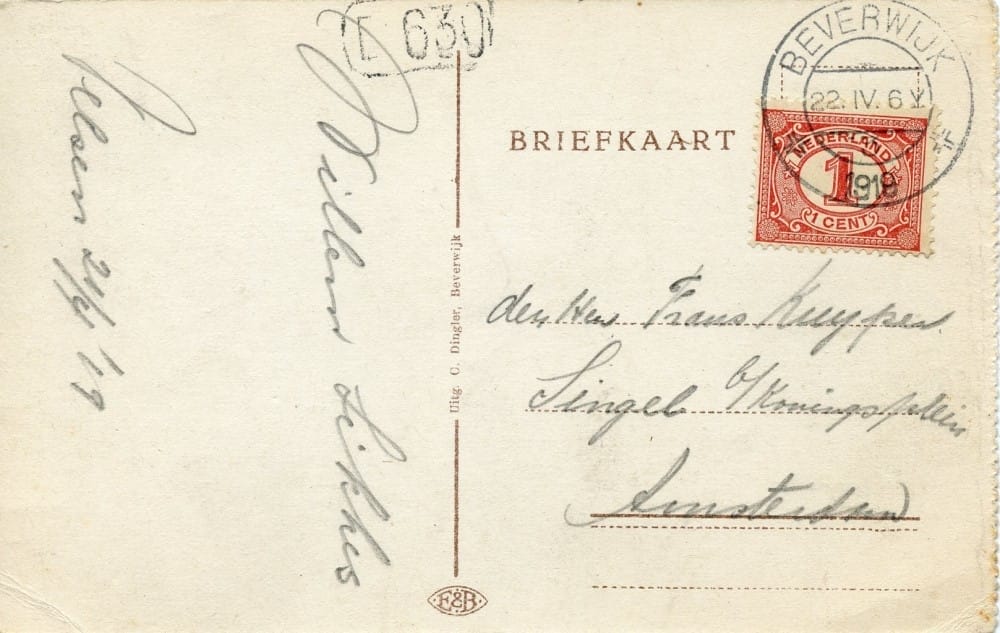 E 630
Velsen 21/4 19
Willem Sikkes
Uitg. C. Dingler, Beverwijk
E&B
BRIEFKAART
BEVERWIJK
22. IV. 6 V
1919
NEDERLAND
1
1 CENT
den Heer Frans Kuyper
Singel b/Koningsplein
Amsterdam